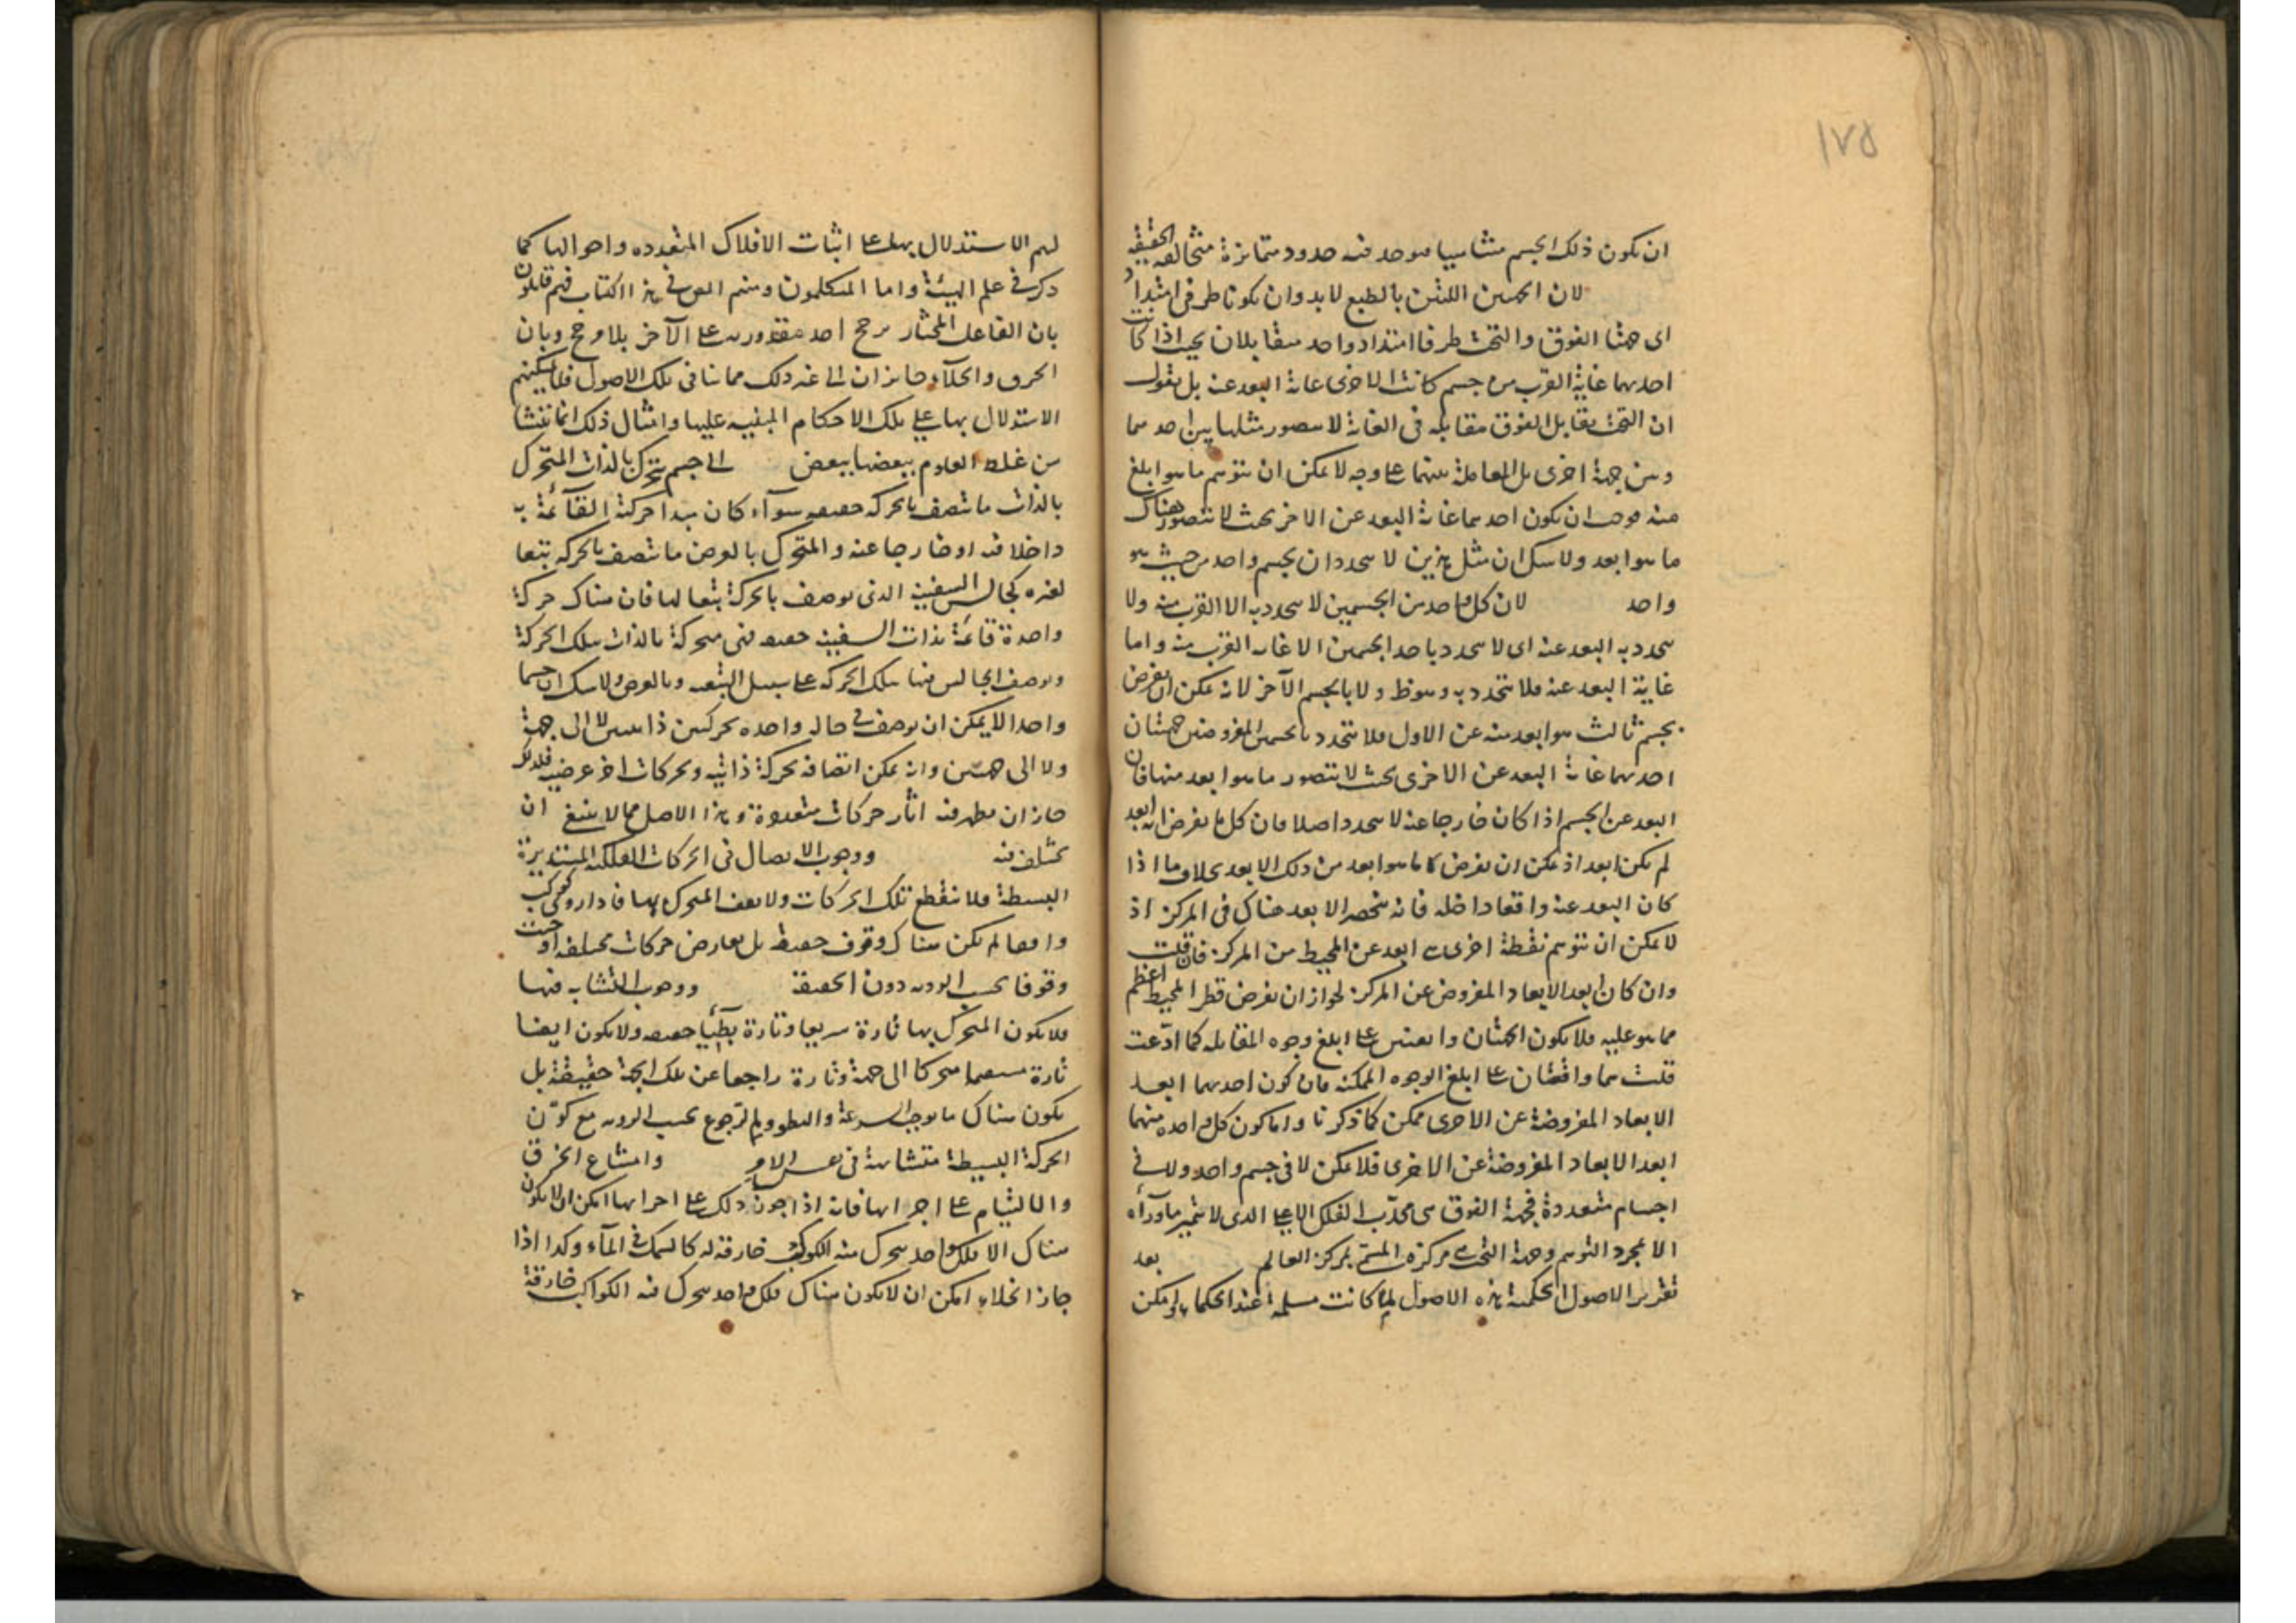 ١٧٥
ان يكون ذلك الجسم متناهيا فيوجد فيه حدود متمايزة متخالفة الحقيقة
لان الجهتين اللتين بالطبع لا بد وان يكونا طرفي امتداد
اى جهتا الفوق والتحت طرفا امتداد واحد متقابلان بحيث اذا كانت
احديهما غاية القرب من جسم كانت الاخرى غاية البعد عنه بل نقول
ان التحت يقابل الفوق مقابلة في الغاية لا يتصور مثلها بين احديهما
وبين جهة اخرى بل المقابلة بينهما على وجه لا يمكن ان يتوهم ما هو ابلغ
منه فوجب ان يكون احديهما غاية البعد عن الاخر بحيث لا يتصور هناك
ما هو ابعد ولا شك ان مثل هذين لا يتحددان بجسم واحد من حيث هو
واحد لان كل واحد من الجسمين لا يتحدد به الا القرب منه ولا
يتحدد به البعد عنه اى لا يتحدد باحد الجسمين الا غاية القرب منه واما
غاية البعد عنه فلا يتحدد به وهو ظ ولا بالجسم الآخر لانه يمكن ان يفرض
بجسم ثالث هو ابعد منه عن الاول فلا يتحدد بالجسمين المفروضين جهتان
احديهما غاية البعد عن الاخرى بحيث لا يتصور ما هو ابعد منها فان
البعد عن الجسم اذا كان خارجا عنه لا يتحدد اصلا فان كل ما يفرض انه ابعد
لم يكن ابعد اذ يمكن ان يفرض ما هو ابعد من ذلك الابعد بخلاف ما اذا
كان البعد عنه واقعا داخله فانه ينحصر الابعد هناك في المركز اذ
لا يمكن ان يتوهم نقطة اخرى هي ابعد عن المحيط من المركز فان قلت
وان كان ابعد الابعاد المفروض عن المركز لجواز ان يفرض قطر المحيط اعظم
مما هو عليه فلا يكون الجهتان واقعتين على ابلغ وجوه المقابلة كما ادّعت
قلت هما واقعتان على ابلغ الوجوه الممكنة فان كون احديهما ابعد
الابعاد المفروضة عن الاخرى ممكن كما ذكرنا واما كون كل واحدة منهما
ابعد الابعاد المفروضة عن الاخرى فلا يمكن لا في جسم واحد ولا في
اجسام متعددة فجهة الفوق هي محدّب الفلك الاعلى الذي لا يتميز ماوراءه
الا بمجرد التوهم وجهة التحت هي مركزه المسمّى بمركز العالم بعد
تقرير الاصول الحكمية هذه الاصول لما كانت مسلمة عند الحكماء يمكن
لهم الاستدلال بها على اثبات الافلاك المتعدده واحوالها كما
ذكر في علم الهيئة واما المتكلمون ومنهم المص في هذا الكتاب فهم قائلون
بان الفاعل المختار يرجح احد مقدوريه على الآخر بلا مرجح وبان
الخرق والخلآء جايزان الى غير ذلك مما ينافى تلك الاصول فلا يمكنهم
الاستدلال بها على تلك الاحكام المبنيه عليها وامثال ذلك انما تنشا
من غلط العلوم بعضها ببعض الى جسم يتحرك بالذات المتحرك
بالذات ما يتصف بالحركه حقيقه سوآء كان مبدا حركته القآئمة به
داخلا فيه او خارجا عنه والمتحرك بالعرض ما يتصف بالحركه بتبعا
لغيره كجالس السفينة الذي يوصف بالحركة تبعا لها فان هناك حركة
واحدة قائمة بذات السفينة حقيقه فهى متحركة بالذات بتلك الحركة
ويوصف الجالس فيها بتلك الحركه على سبيل التبعيه وبالعرض ولا شك ان جسما
واحدا لا يمكن ان يوصف في حالة واحده بحركتين ذاتيتين لا الى جهة
ولا الى جهتين وانه يمكن اتصافه بحركة ذاتيه وبحركات اخر عرضية فلذلك
جاز ان يظهر فيه اثار حركات متعددة وهذا الاصل مما لا ينبغى ان
يختلف فيه ووجوب الاتصال في الحركات الفلكية المستديرة
البسيطة فلا تنقطع تلك الحركات ولا يقف المتحرك بها فان دار وكوكب
واقعا لم يكن هناك وقوف حقيقة بل تعارض حركات مختلفه اوجبت
وقوفا بحسب الرويه دون الحقيقة ووجوب التشابه فيها
فلا يكون المتحرك بها تارة سريعا وتارة بطيئا حقيقه ولا يكون ايضا
تارة مستقيما متحركا الى جهة وتارة راجعا عن تلك الجهة حقيقة بل
يكون هناك ما يوجب السرعة والبطؤ والرجوع بحسب الرويه مع كون
الحركة البسيطة متشابهة في نفس الامر وامتناع الخرق
والالتيام على اجرامها فانه اذا جوّز ذلك على اجرامها امكن ان لا يكون
هناك الا فلك واحد يتحرك فيه الكواكب خارقة له كالسمك في المآء وكذا اذا
جاز الخلاء امكن ان لا يكون هناك فلك واحد يتحرك فيه الكواكب خارقة